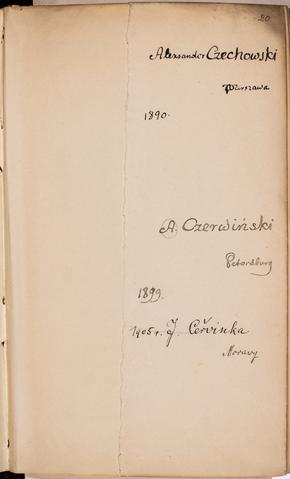 20
Alexsander Czechowski
Warszawa
1890.
A. Czerwiński
Petersburg
1899.
1905 r. J. Červinka
Moravy